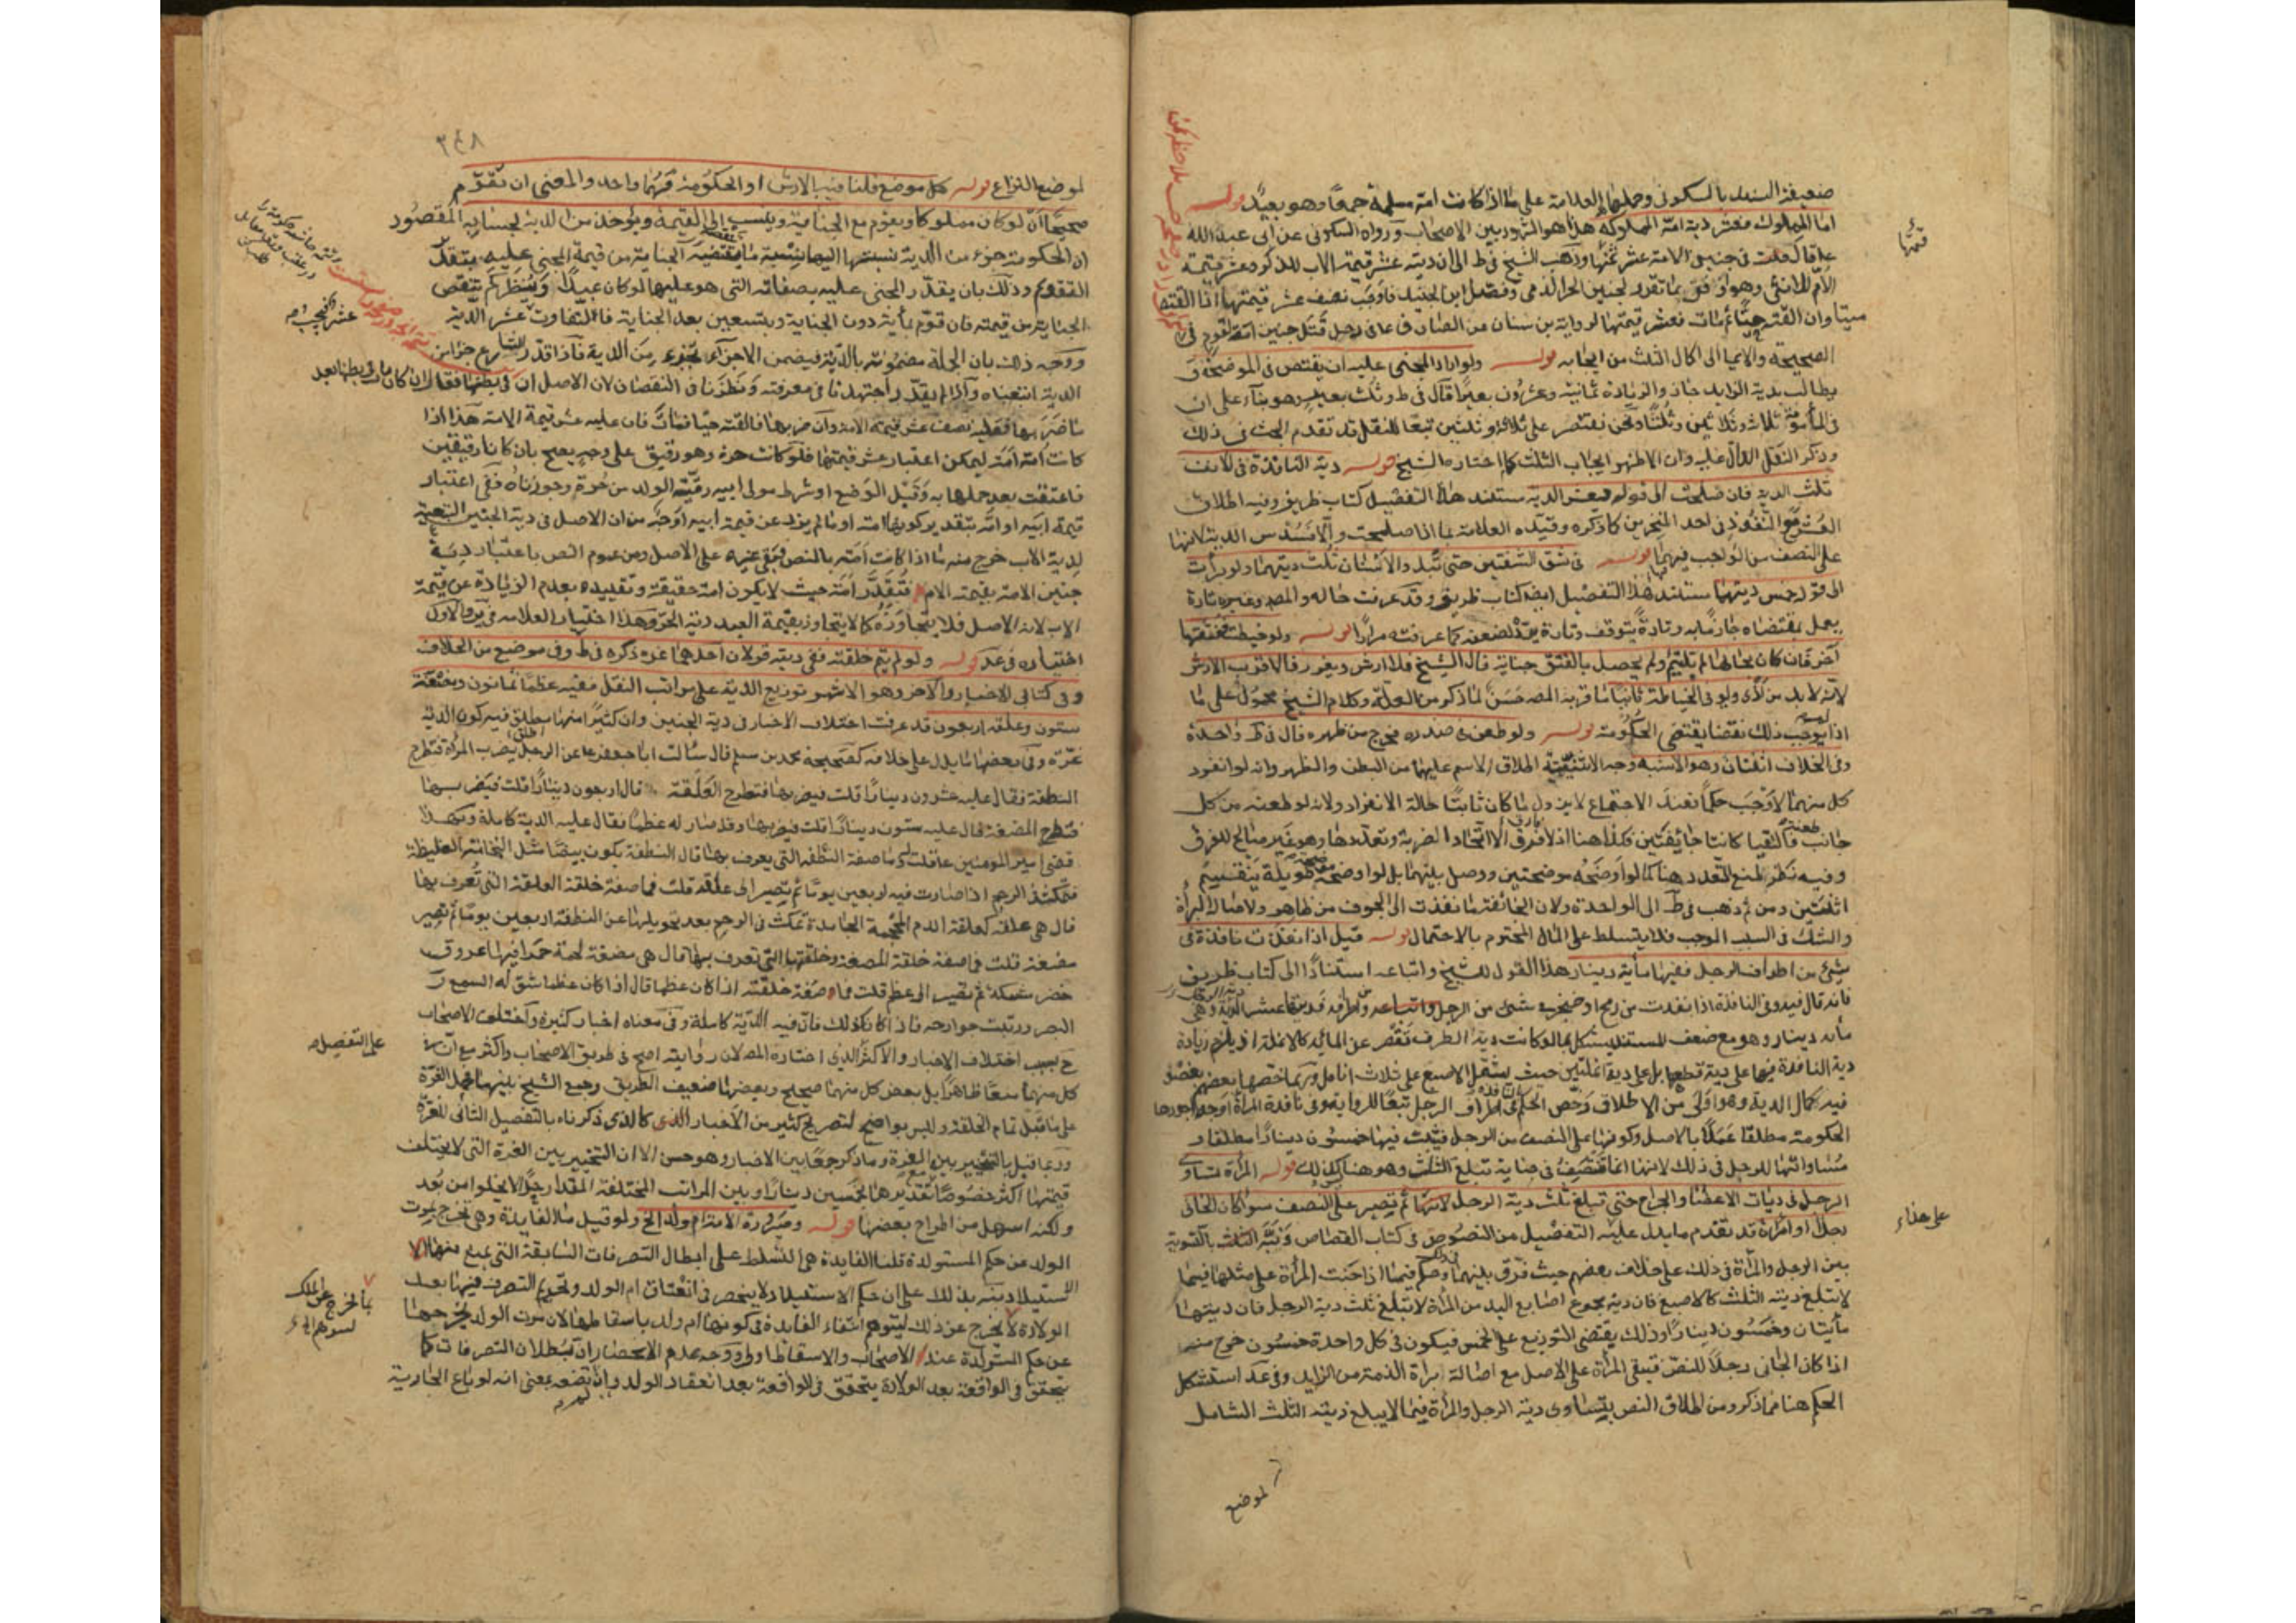 ضعيفة السند بالسكونى وحملها العلامة على ما اذا كانت امته مسلمة جمعًا وهو بعيد قوله
اما المملوك فعشر دية امه المملوكة هذا هو المشهور بين الاصحاب ورواه السكونى عن ابى عبد الله
فى جنين الامة عشر ثمنها وذهب الشيخ فى ط الى ان ديته عشر قيمة الاب للذكر وعشر قيمة
الام للانثى وهو اوفق بما تقرر لجنين الحر الذمى وفصل ابن الجنيد فاوجب نصف عشر قيمتها اذا القته
ميتا وان القته حيًّا ثم مات فعشر قيمتها لرواية بن سنان عن الصادق ع فى رجل قتل جنين امة لقوم فى
الصحيحة والايما الى اكمال الثلث من ايجابه قوله ولو اراد المجنى عليه ان يقتص فى الموضحة و
يطالب بدية الزايد جاز والزيادة ثمانية وعشرون بعيرًا قال فى ط وثلث بعير وهو بناء على ان
فى المأمومة ثلاث وثلاثين وثلثًا ونحن نقتصر على ثلاثة وثلثين تبعًا للنقل قد تقدم البحث فى ذلك
وذكر النقل الدال عليه وان الاظهر ايجاب الثلث كما اختاره الشيخ قوله دية النافذة فى الانف
ثلث الدية فان صلحت الى قوله فعشر الدية مستند هذا التفصيل كتاب ظريف وفيه اطلاق
العشر مع النفوذ فى احد المنخرين كما ذكره وقيده العلامة بما اذا صلحت والا فسدس الدية لانها
على النصف من الواجب فيهما قوله فى شق الشفتين حتى تبدو الاسنان ثلث ديتهما ولو برأت
الى قوله خمس ديتهما مستند هذا التفصيل ايضا كتاب ظريف وقد عرفت حاله والمصـ وغيره تارة
يعمل بمقتضاه جازمًا به وتارةً يتوقف وتارة يردّ لضعفه كما عرفته مرارًا قوله ولو خيطت ففتقها
آخر فان كان بحالها لم يلتئم ولم يحصل بالفتق جناية قال الشيخ فلا ارش ويعزر قالاقرب الارش
لانه لا بد من اذى ولو فى الخياطة ثانيًا ما قربه المصـ حَسَن لما ذكر من العلة وكلام الشيخ محمول على ما
اذا لم يوجب ذلك نقصًا يقتضى الحكومة قوله ولو طعن فى صدره فخرج من ظهره قال فى ط واحدة
وفى الخلاف اثنتان وهو الاشبه وجه الاثنينية اطلاق الاسم عليهما من البطن والظهر وانه لو انفرد
كل منهما لاوجب حكمًا فعند الاجتماع لا يزول ما كان ثابتًا حالة الانفراد ولانه لو طعنه من كل
جانب طعنة فالتقيا كانتا جائفتين فكذا هنا اذ لا فرق الا اتحاد الضربة وتعددها وهو غير صالح للفرق
وفيه نظر لمنع التعدد هنا كما لو اوضحه موضحتين ووصل بينهما بل لو اوضحه موضحة طويلة ينقسم
اثنتين ومن ثم ذهب فى ط الى الواحدة ولان الجائفة ما نفذت الى الجوف من ظاهر ولاصالة البرأة
والشك فى السبب الموجب فلا يتسلط على المال المحترم بالاحتمال قوله قيل اذا نفذت نافذة فى
شئ من اطراف الرجل ففيها مأية دينار هذا القول للشيخ واتباعه استنادًا الى كتاب ظريف
فانه قال فيه وفى النافذة اذا نفذت من رمح او خنجر فى شئ من الرجل من اطرافه فديتها عشر الدية وهى
مأة دينار وهو مع ضعف المستند يشكل بما لو كانت دية الطرف تقصر عن المأية كالانملة اذ يلزم زيادة
دية النافذة فيها على دية قطعها بل على دية انملتين حيث يشتمل الاصبع على ثلاث انامل وربما خصها بعضهم بعضو
فيه كمال الدية وهو اولى من الاطلاق وخص الحكم فى اطراف الرجل تبعًا للرواية وفى نافذة المرأة اوجه اجودها
الحكومة مطلقًا عملًا بالاصل وكونها على النصف من الرجل فيثبت فيها خمسون دينارًا مطلقا و
مساواتها للرجل فى ذلك لانها انما تنتصف فى جناية تبلغ الثلث وهو هنا كذلك قوله المرأة تساوى
الرجل فى ديات الاعضا والجراح حتى تبلغ ثلث دية الرجل ثم تصير على النصف سوا كان الجانى
رجلا او امرأة قد تقدم ما يدل عليه التفصيل من النصوص فى كتاب القصاص ونبّه الثلث بالتسوية
بين الرجل والمرأة فى ذلك على خلاف بعضهم حيث فرّق بينهما وحكم فيما اذا جنت المرأة على مثلها فيما
لا تبلغ ديته الثلث كالاصبع فان دية مجموع اصابع اليد من المرأة لا تبلغ ثلث دية الرجل فان ديتها
مأيتان وخمسون دينارًا وذلك يقتضى التوزيع على الخمس فيكون فى كل واحدة خمسون خرج منه
اذا كان الجانى رجلًا للنص فتبقى المرأة على الاصل مع اصالة برأة الذمة من الزايد وفى عد استشكل
الحكم هنا مما ذكر ومن اطلاق النص بتساوى دية الرجل والمرأة فيما لا يبلغ ديته الثلث الشامل
لموضع
قيمتها
على هذا
٣٤٨
لموضع النزاع قوله كل موضع قلنا فيه الارش او الحكومة فهما واحد والمعنى ان نقوّم
صحيحًا ان لو كان مملوكا ويقوم مع الجناية وينسب الى القيمة ويؤخذ من الدية بحسابه المقصود
ان الحكومة جزء من الدية نسبتها اليها نسبة ما تقتضيه الجناية من قيمة المجنى عليه بتقدير
التقويم وذلك بان يقدّر المجنى عليه بصفاته التى هو عليها لو كان عبدًا وينظر كم تنقص
الجناية من قيمته فان قوّم بمأية دون الجناية وبتسعين بعد الجناية فالتفاوت عشر الدية
ووجه ذلك بان الجملة مضمونة بالدية فيضمن الاجزاء بجزء من الدية فاذا قدّر الشارع جزأ من
الدية اتبعناه واذا لم يقدّر اجتهدنا فى معرفته ونظرنا فى النقصان لان الاصل ان
ما ضربها فعليه نصف عشر قيمة الامة وان ضربها فالقته حيًا فمات فان عليه عشر قيمة الامة هذا اذا
كانت امه امَة ليمكن اعتبار عشر قيمتها فلو كانت حرة وهو رقيق على وجهٍ يصح بان كانا رقيقين
فاعتقت بعد حملها به وقبل الوضع او شرط مولى ابيه رقّية الولد من حرة وجوزناه ففى اعتبار
قيمة ابيه او امّه بتقدير كونها امة او ما لم يزد عن قيمة ابيه اوجه من ان الاصل فى دية الجنين التبعية
لدية الاب خرج منه ما اذا كانت امه بالنص فبقى غيره على الاصل ومن عموم النص باعتبار دية
جنين الامة بقيمة الام فتقدّر امَة حيث لا يكون امة حقيقة وتقييده بعدم الزيادة عن قيمة
الاب لانه الاصل فلا يتجاوزه كما لا يتجاوز بقيمة العبد دية الحرّ وهذا اختيار العلامه فى ير والاول
اختياره فى عد قوله ولو لم يتم خلقته ففى ديته قولان احدهما غرة ذكره فى ط وفى موضع من الخلاف
وفى كتابى الاخبار والآخر وهو الاشهر توزيع الدية على مراتب النقل ففيه عظمًا ثمانون ومضغة
ستون وعلقة اربعون قد عرفت اختلاف الاخبار فى دية الجنين وان كثيرًا منها مطلق فيه كون الدية
غرّة وفى بعضها ما يدل على خلافه كصحيحة محمد بن مسلم قال سالت ابا جعفر ع عن الرجل يضرب المرأة فتطرح
النطفة فقال عليه عشرون دينارًا قلت فيضربها فتطرح العَلَقة قال اربعون دينارًا قلت فيضربها
فتطرح المضغة قال عليه ستون دينارًا قلت فيضربها وقد صار له عظمًا فقال عليه الدية كاملة وبهذا
قضى امير المؤمنين ع قلت له ما صفة النطفة التى يعرف بها قال النطفة يكون بيضًا مثل النخامة الغليظة
فتمكث فى الرحم اذا صارت فيه اربعين يومًا ثم تصير الى علقة قلت فما صفة خلقة العلقة التى تُعرف بها
قال هى علقة كعلقة الدم المحجمة الجامدة تمكث فى الرحم بعد تحويلها عن النطفة اربعين يومًا ثم تصير
مضغة قلت فما صفة خلقة المضغة وخلقتها التى تعرف بها قال هى مضغة لحمة حمرا فيها عروق
خضر مشبكة ثم تصير الى عظم قلت فما صفة خلقته اذا كان عظمًا قال اذا كان عظما شق له السمع و
البصر ورتبت جوارحه فاذا كان كذلك فان فيه الدية كاملة وفى معناه اخبار كثيرة واختلف الاصحاب
بسبب اختلاف الاخبار والاكثر الذى اختاره المصـ لان روايته اصح فى طريق الاصحاب واكثر مع ان
كل منهما معًا ظاهرًا بل بعض كل منهما صحيح وبعضها ضعيف الطريق وجمع الشيخ بينهما بحمل الغرّة
على ما قبل تمام الخلقة وليس بواضح لتصريح كثير من الاخبار الذى كالذى ذكرناه بالتفصيل الثانى للغرّة
وربما قيل بالتخيير بين الغرة وما ذكر جمعًا بين الاخبار وهو حسن الا ان التخيير بين الغرة التى لا يختلف
قيمتها اكثر خصوصًا مع تقديرها بخمسين دينارًا وبين المراتب المختلفة المقدار جدًّا لا يخلوا من بُعد
ولكنه اسهل من اطراح بعضها قوله وصيرورة الامة ام ولد الخ ولو قيل ما الفايدة وهى تخرج بموت
الولد من حكم المستولدة قلنا الفايدة هى التسلط على ابطال التصرفات السابقة التى يمنع منها الا
ستيلاد ونبّه بذلك على ان حكم الاستيلاد لا ينحصر فى انعتاق ام الولد وتحريم التصرف فيها بعد
الولادة لا يخرج عن ذلك ليتوهم انتفاء الفايدة فى كونها ام ولد باسقاطها لان موت الولد يخرجها
عن حكم المستولدة عند الاصحاب والاسقاط اولى ووجه عدم الانحصار ان بطلان التصرفات كما
يتحقق فى الواقعة بعد الولادة يتحقق فى الواقعة بعد انعقاد الولد وان لم تضعه بمعنى انه لو باع الجارية
على التفصيل